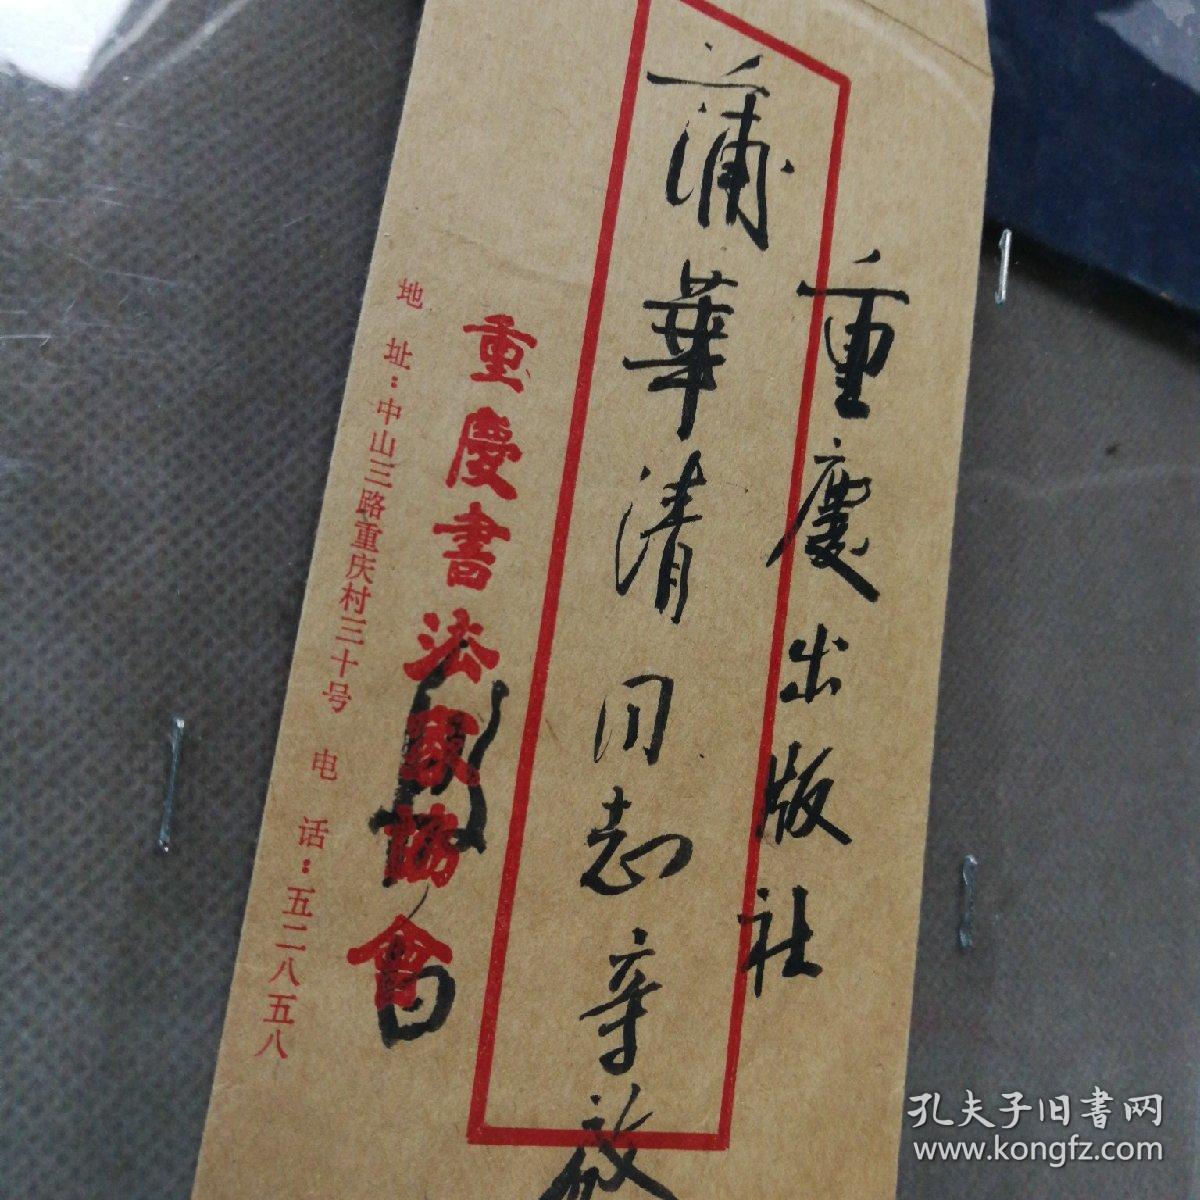 重慶出版社
蒲華清同志亲啟
重慶書法家協會
地 址：中山三路重庆村三十号 电 话：五二八五八
孔夫子旧書网
www.kongfz.com